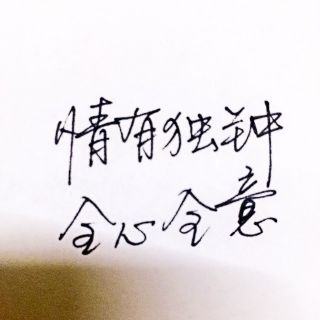 情有独钟
全心全意